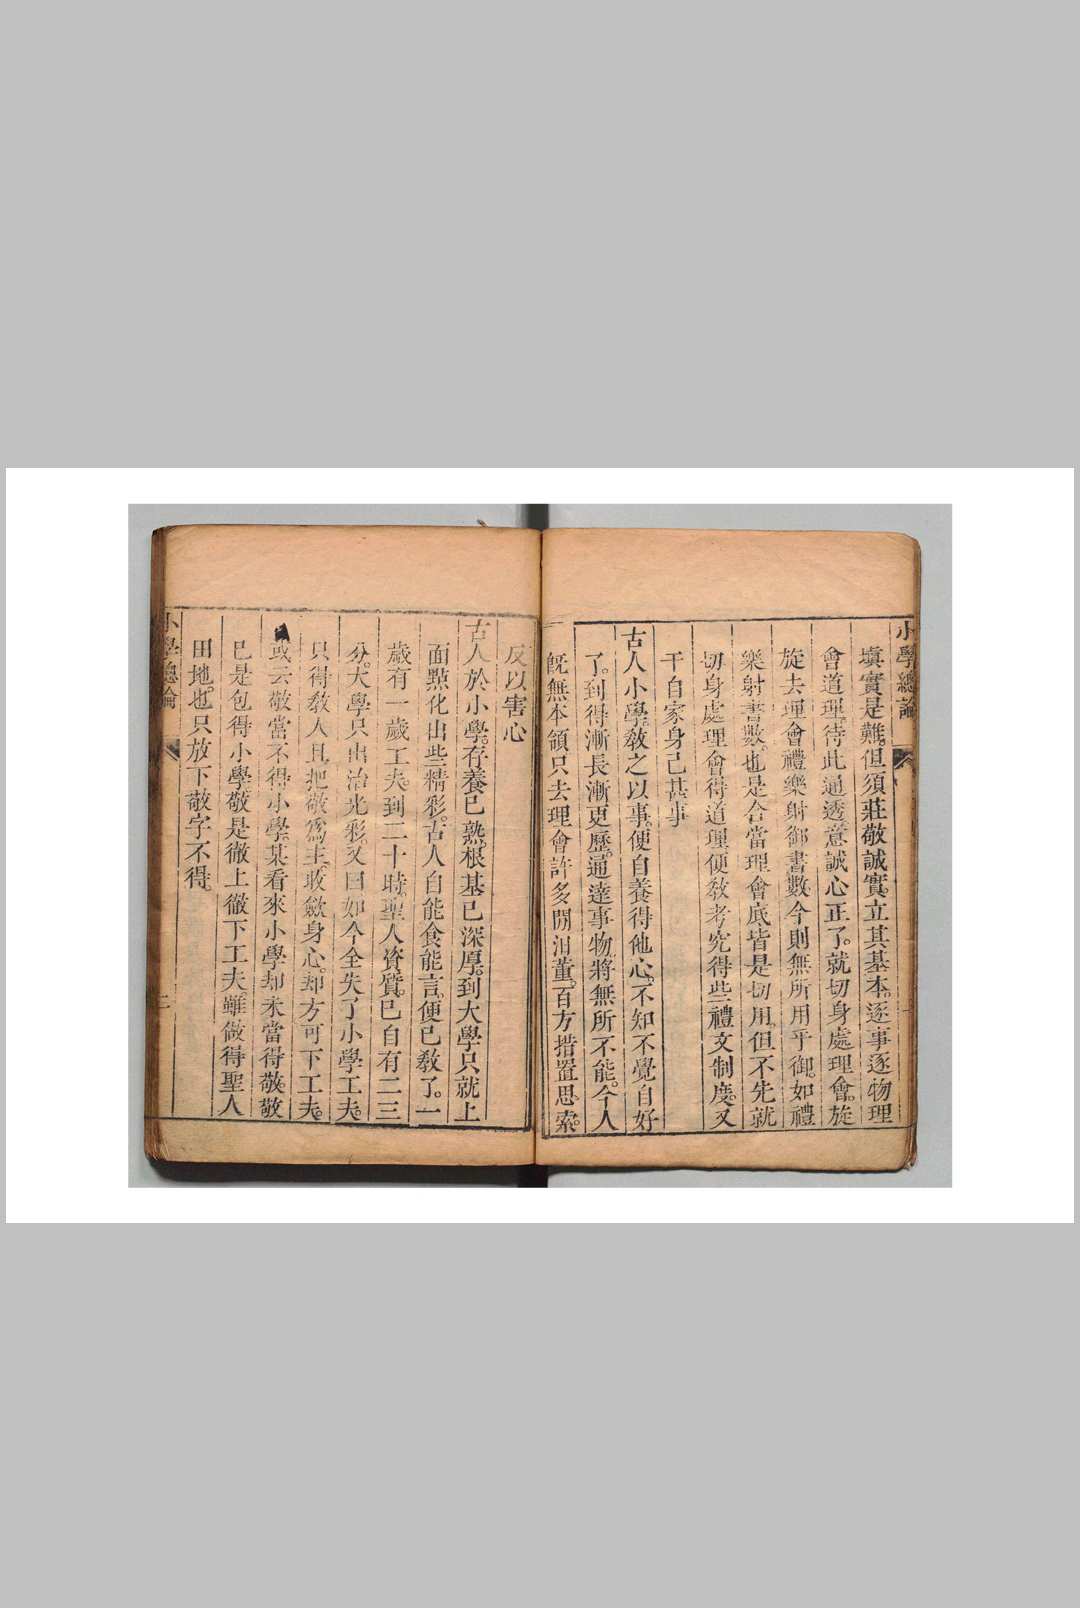 小學總論
填實是難。但須莊敬誠實。立其基本。逐事逐物理
會道理。待此通透意誠心正了。就切身處理會。旋
旋去理會禮樂射御書數。今則無所用乎御。如禮
樂射書數。也是合當理會底。皆是切用。但不先就
切身處理會得道理。便教考究得些禮文制度。又
干自家身己甚事
古人小學。教之以事。便自養得他心。不知不覺自好
了。到得漸長。漸更歷。通達事物。將無所不能。今人
旣無本領。只去理會許多閒汨董。百方措置思索。
反以害心
古人於小學。存養已熟。根基已深厚。到大學。只就上
面點化出些精彩。古人自能食能言。便已教了。一
歲有一歲工夫。到二十時。聖人資質。已自有二三
分。大學只出治光彩。又因如今全失了小學工夫。
只得教人且把敬爲主。收斂身心。却方可下工夫。
或云敬當不得小學。某看來小學却未當得敬。敬
已是包得小學。敬是徹上徹下工夫。雖做得聖人
田地。也只放下敬字不得。
小學總論
二